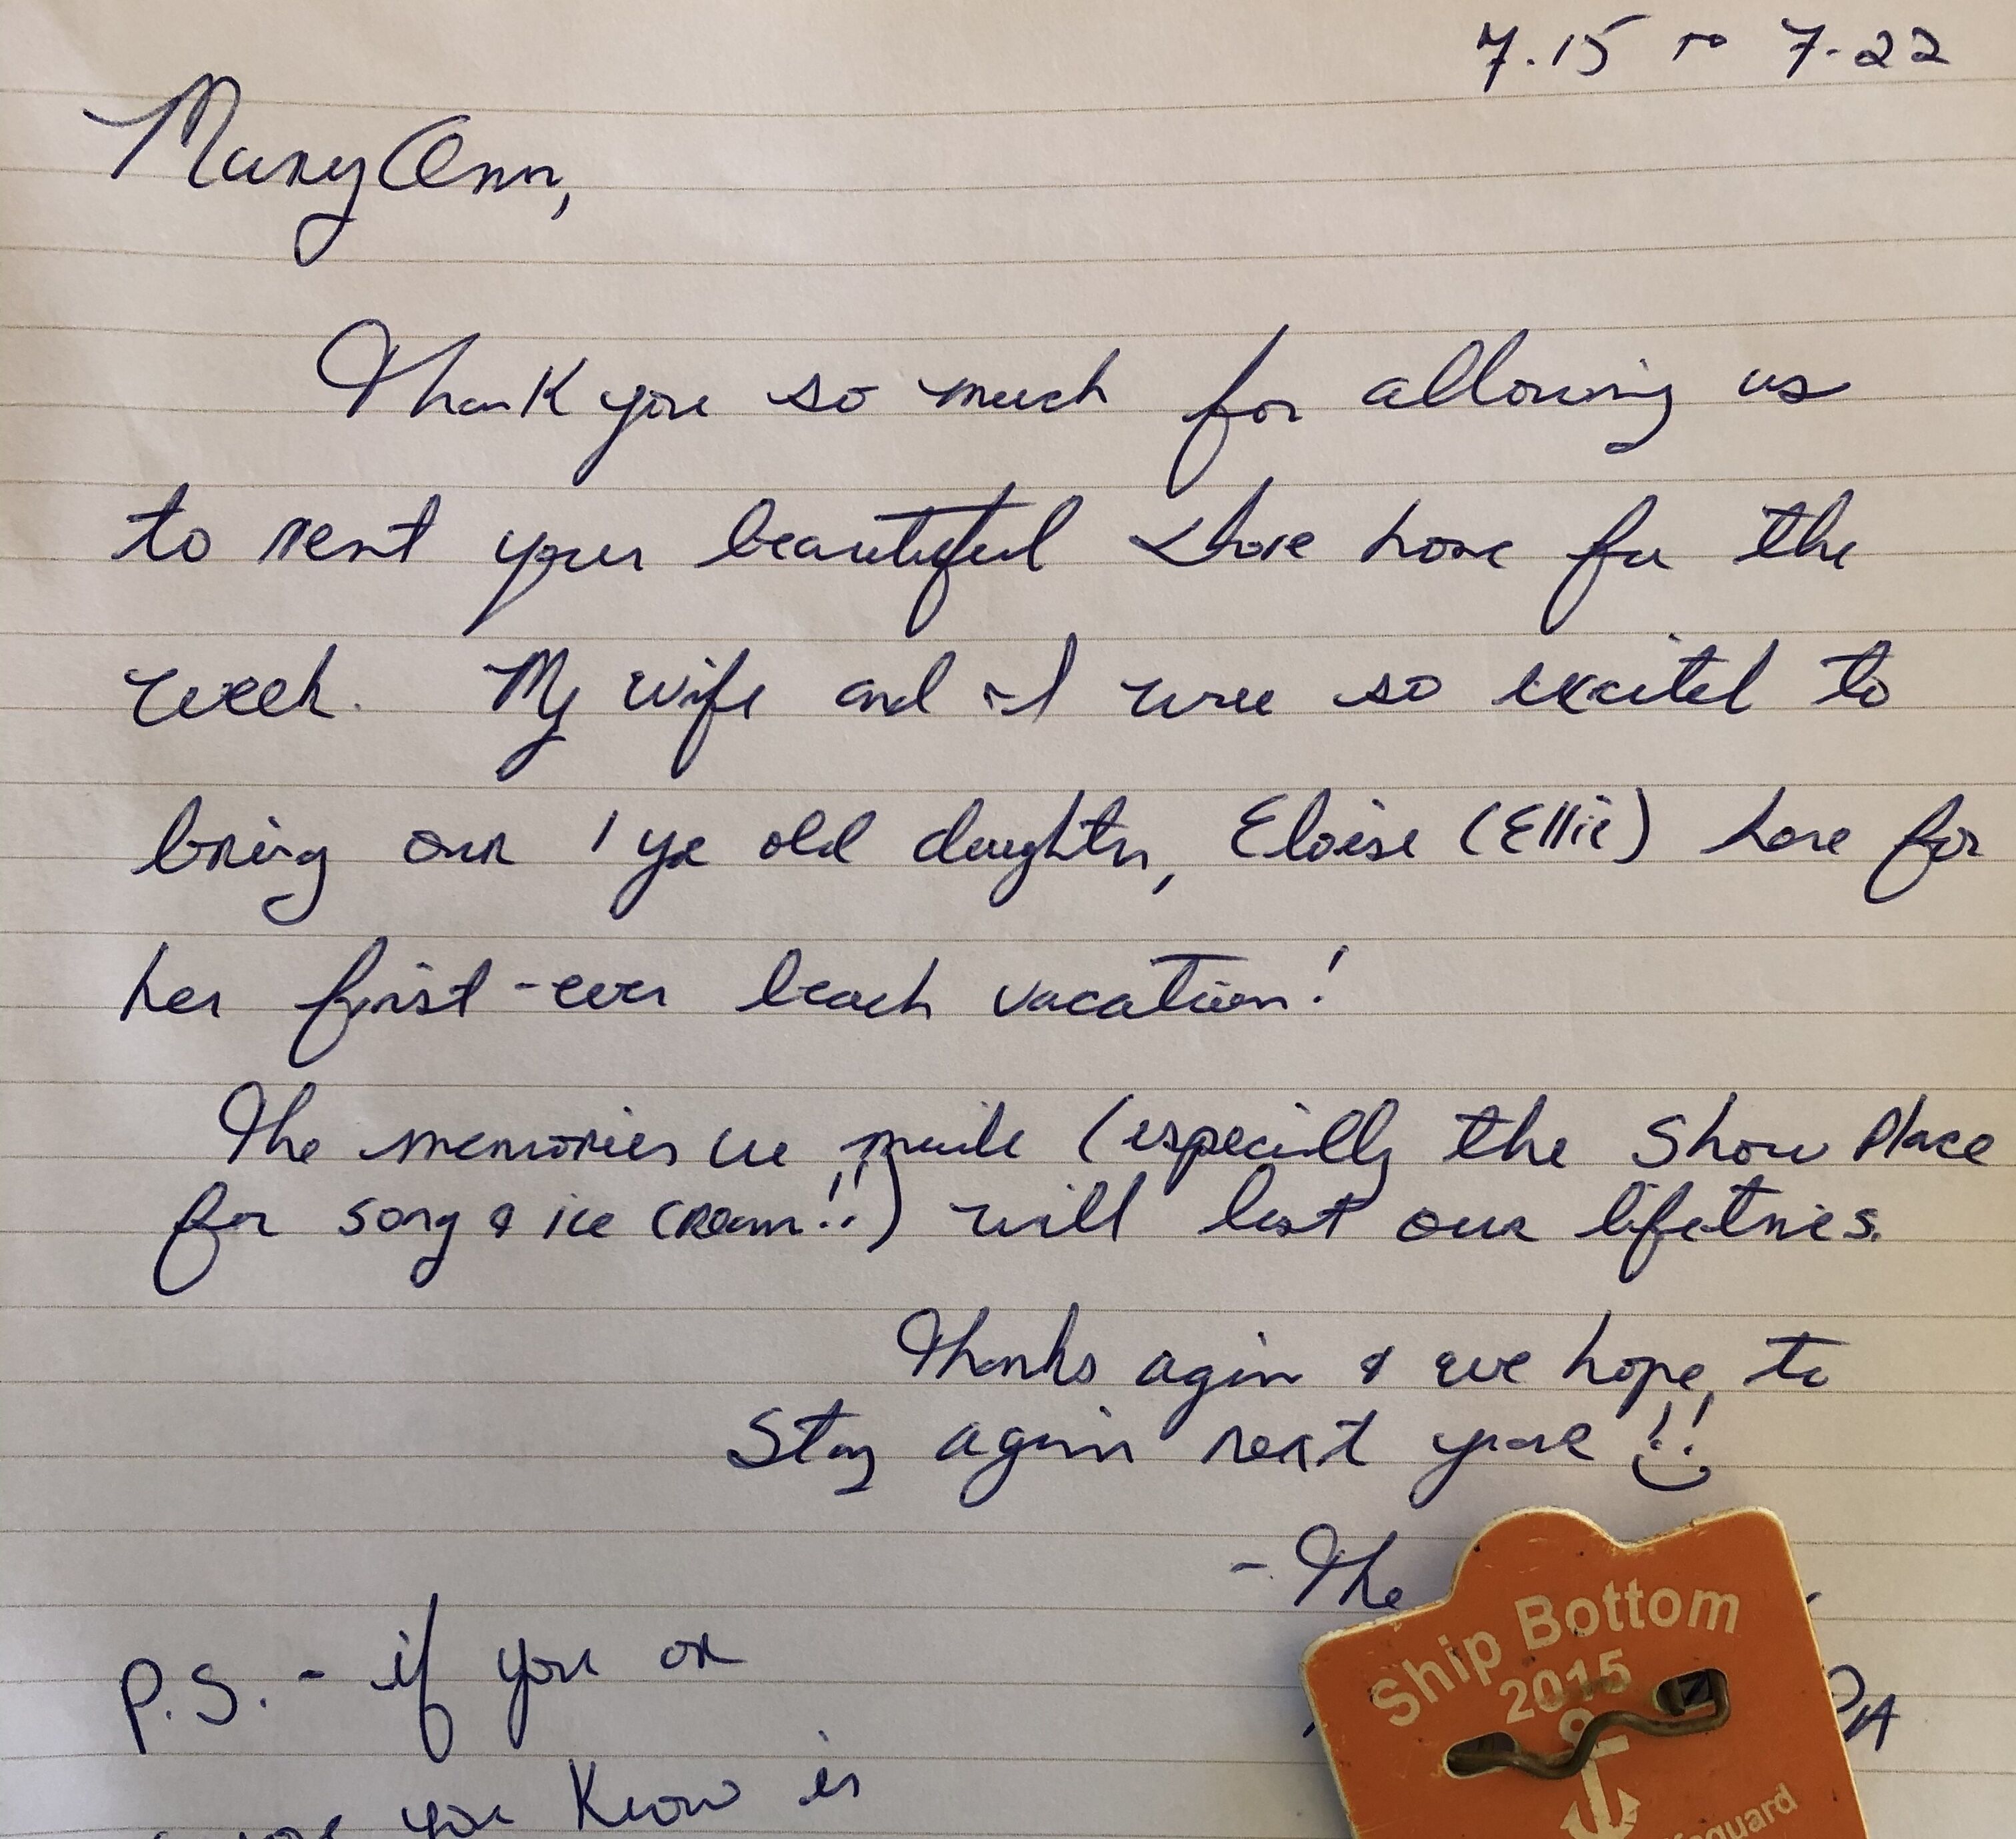 7.15 to 7-22
Mary Ann,
Thank you so much for allowing us
to rent your beautiful shore home for the
week. My wife and I were so excited to
bring our 1 yr old daughter, Eloise (Ellie) here for
her first-ever beach vacation!
The memories we made (especially the Show Place
for song & ice cream!!) will last our lifetimes.
Thanks again & we hope to
Stay again next year!!
- The
PA
P.S. - if you or
you know is
Ship Bottom
2015